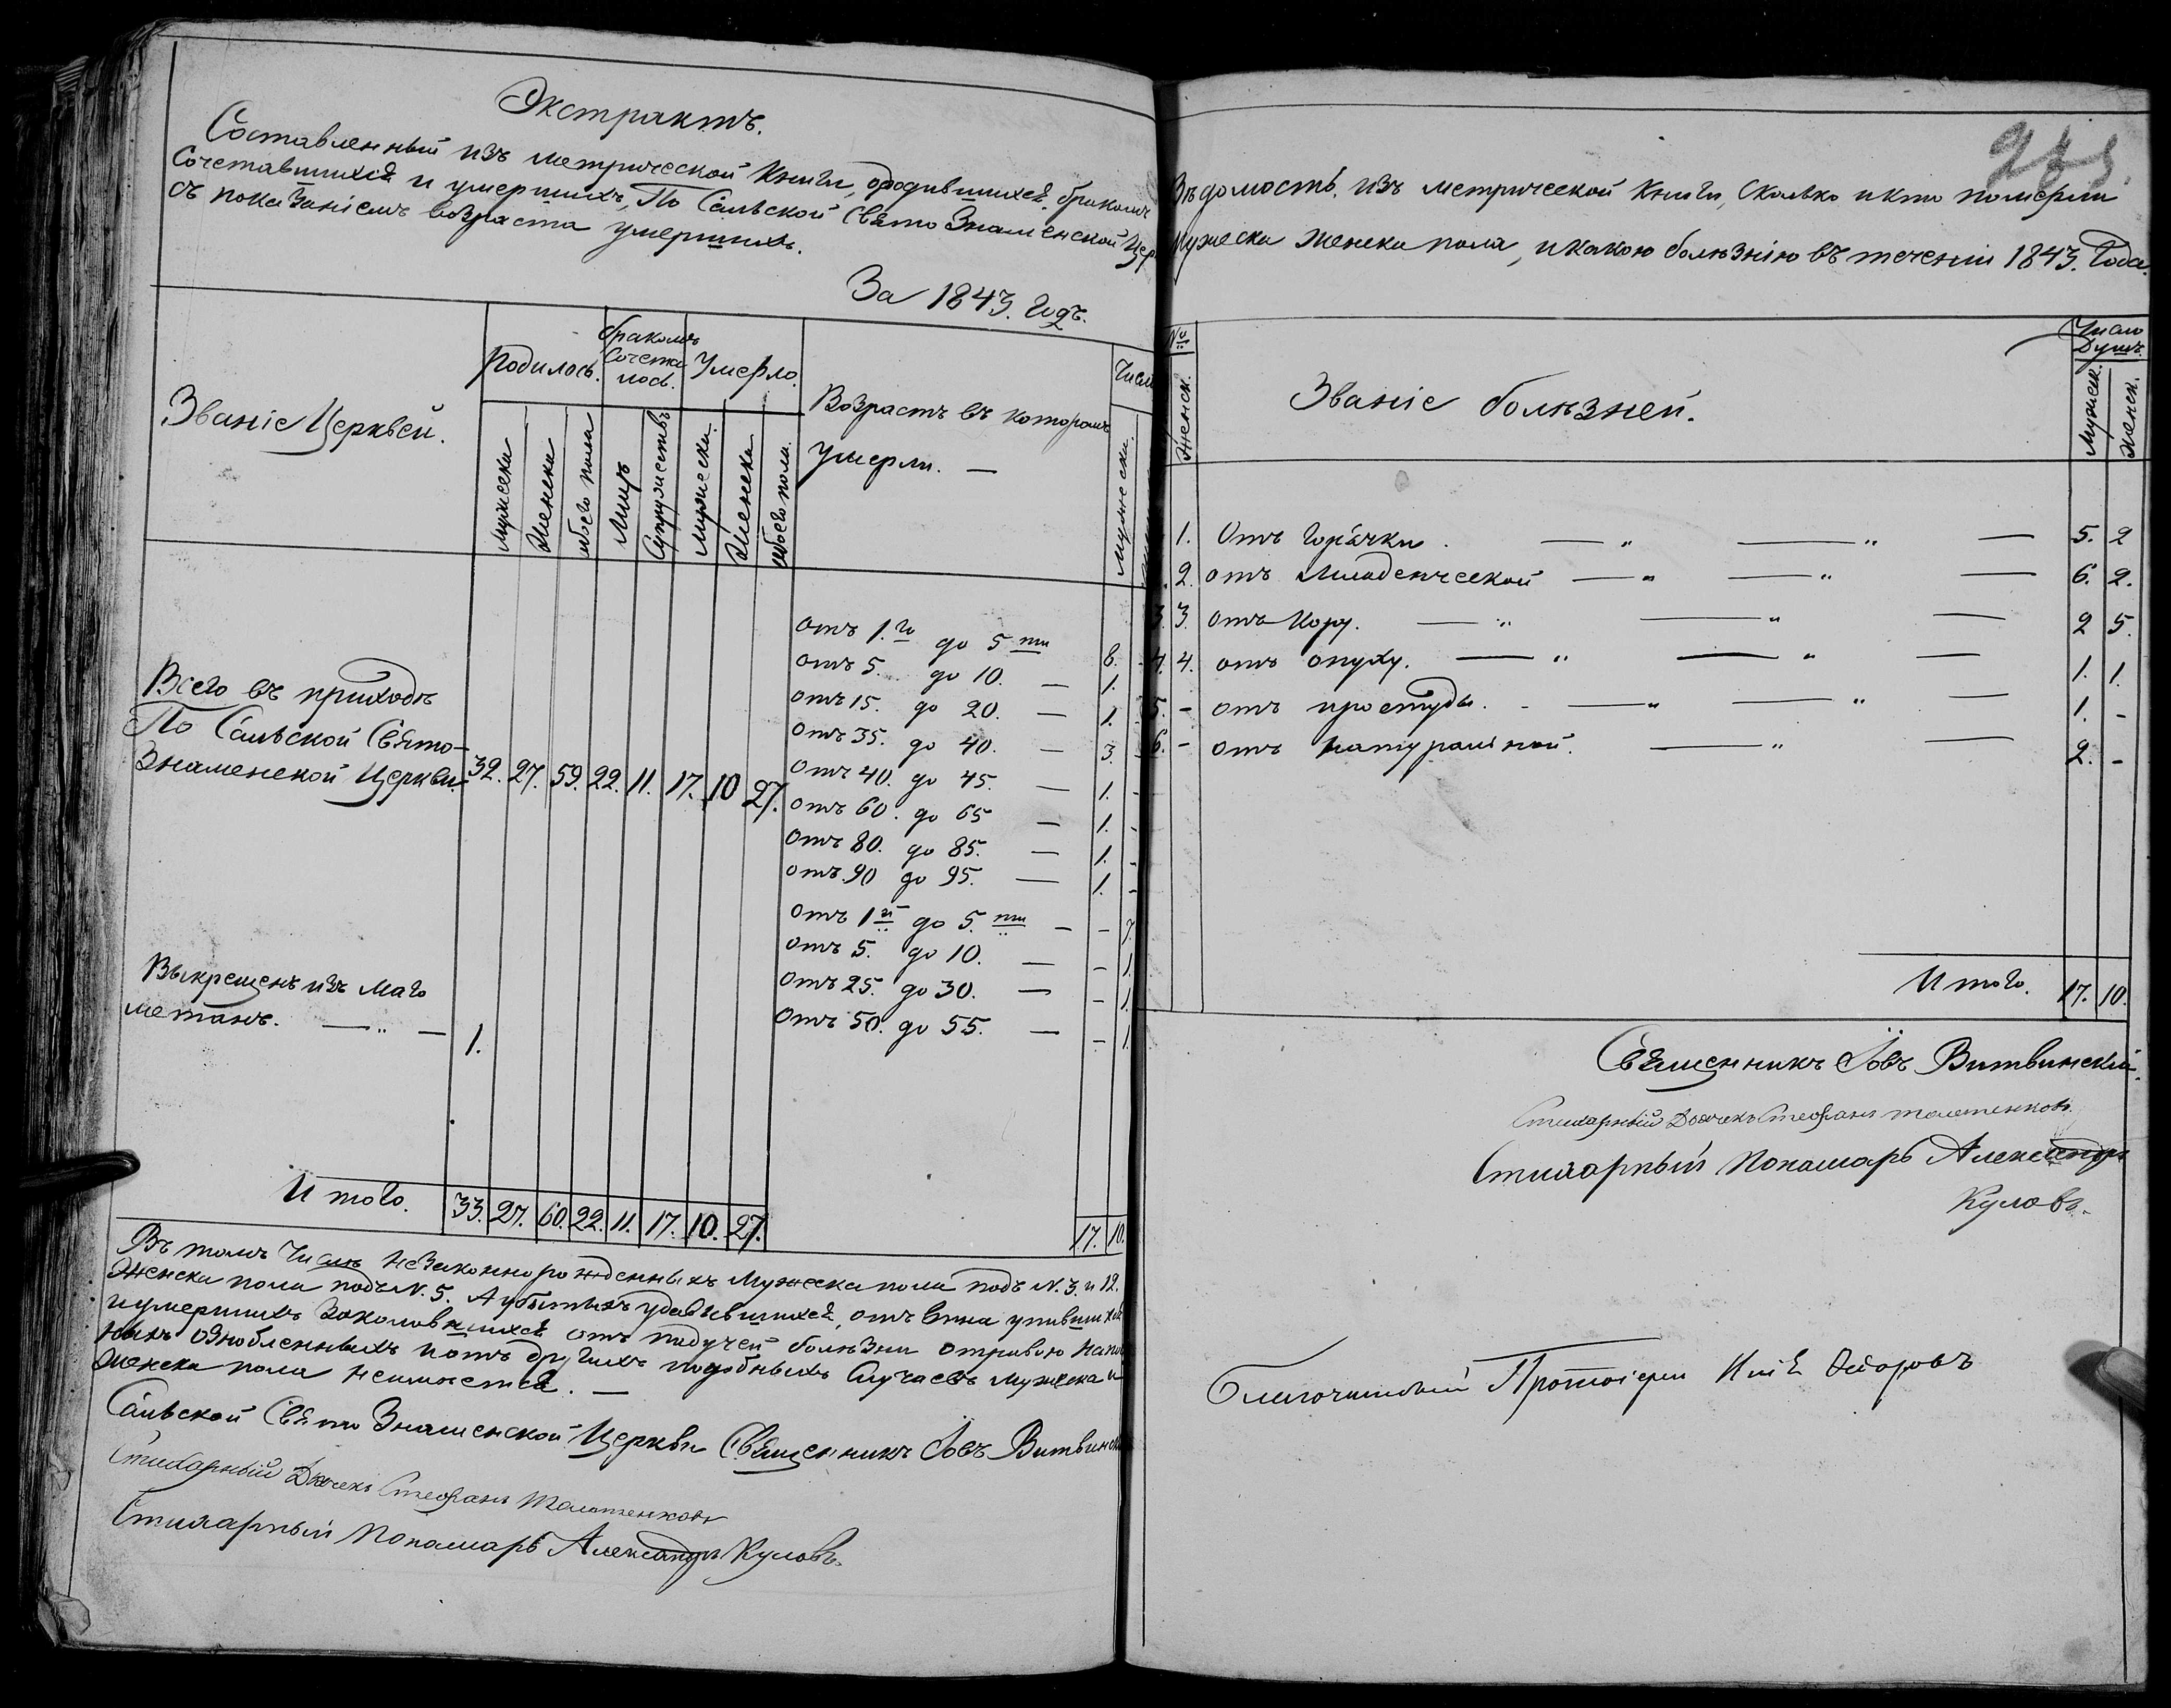 Экстрактъ.
Составленный изъ метрической книги, ородившихся, бракомъ
Сочетавшихся и умершихъ, По Сальской Свято Знаменской Цер
съ показаніемъ возраста умершихъ.
За 1843. годъ.
Званіе Церквей.
родилось.
бракомъ Сочета лось.
Умерло.
Возрастъ въ которомъ
умерли. —
Числ
Мужеска
Женска
обоего пола
Лицъ
Супружествъ
Мужеска.
Женска
обоего пола.
Мужеска.
Всего въ приходѣ
По Сальской Свято-
Знаменской Церкви 32. 27. 59. 22. 11. 17. 10 27.
отъ 1.го до 5 ти 8.
отъ 5. до 10. — 1.
отъ 15. до 20. — 1.
отъ 35. до 40. — 3.
отъ 40. до 45. — 1. -
отъ 60. до 65 — 1. -
отъ 80. до 85. — 1. -
отъ 90 до 95. — 1. -
отъ 1 й до 5. ти — - 7.
отъ 5. до 10. — - 1.
отъ 25. до 30. — - 1.
отъ 50. до 55. — - 1.
Выкрещенъ изъ Маго
метанъ. — „ — 1.
Итого. 33. 27. 60. 22. 11. 17. 10. 27. 17. 10.
Въ томъ Числѣ незаконнорожденныхъ Мужеска пола подъ N. 3. и 12.
Женска пола подъ N. 5. А убитыхъ удавившихся, отъ вина упившихся
иумершихъ Заколовшихся отъ падучей болѣзни отравою
ныхъ ознобленныхъ иотъ другихъ подобныхъ Случаевъ мужеска и
женска пола неимѣется. —
Сальской Свято Знаменской Церкви Священникъ Іовъ Витвинск
Стихарный Дьячекъ Стефанъ
Стихарный Понамарь Александръ Куловъ.
Вѣдомость. изъ метрической книги, Сколько икто померли
Мужеска Женска пола, икакою болѣзнію въ теченіи 1843. Года.
№
Женск.
Званіе болѣзней.
Число Душъ.
Мужеск.
Женск.
1. Отъ горячки. — „ — „ — 5. 2
2. отъ Младенческой — „ — „ — 6. 2.
3. 3. отъ Кору. — „ — „ — 2 5.
4. 4. отъ опуху. — „ — „ — 1. 1.
5. - отъ простуды. - — „ — „ — 1. -
6. - отъ натуральной. — „ — 2. -
Итого. 17. 10.
Священникъ Іовъ Витвинскій.
Стихарный Дьячекъ Стефанъ
Стихарный Понамарь Александръ
Куловъ.
Благочинный Протоіерей Илія Ѳедоровъ